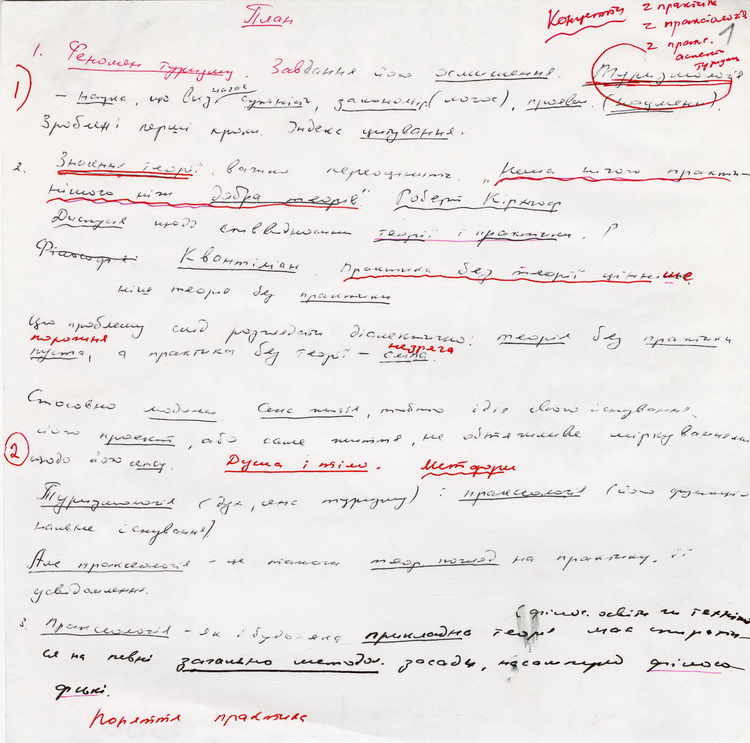 План
Концепти
з практики
з праксіології
з практ.
аспект
туризму
1
1. Феномен туризму. Завдання його осмислення. Туризмологія
1)
– наука, що визначає сутність, закономір (логос), прояви. (ноумени).
Зроблені перші кроки. Індекс цитування.
2. Значення теорії важко переоцінити. „Нема нічого практич-
нішого ніж добра теорія" Роберт Кірхгоф
Дискусія щодо співвідношення теорії і практики. Р
Філософські Квантіліан практика без теорії цінніше
ніж теорія без практики
Цю проблему слід розглядати діалектично: теорія без практики
порожня
пуста, а практика без теорії – сліпа.
незряча
Стосовно людини Сенс життя, тобто ідея свого існування
його проект, або саме життя, не обтяжливе міркуваннями
2
щодо його сенсу. Душа і тіло. Метафори
Туризмологія (дух, сенс туризму) і праксеологія (його функціо
нальне існування)
Але праксеологія – це також теор. погляд на практику, її
усвідомлення.
(філос. освіти чи техніки
3. Праксеологія – як і будь-яка прикладна теорія має спирати-
ся на певні загально методол. засади, насамперед філосо
фські.
Поняття практика